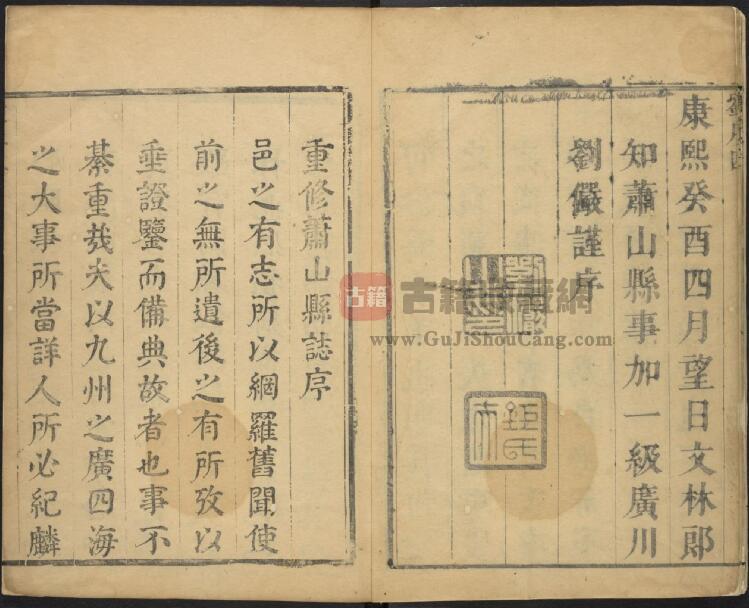 康熙癸酉四月望日文林郎
知蕭山縣事加一級廣川
劉儼謹序
重修蕭山縣誌序
邑之有志所以網羅舊聞使
前之無所遺後之有所攷以
垂證鑒而備典故者也事不
綦重哉夫以九州之廣四海
之大事所當詳人所必紀麟
古籍
古籍收藏網
www.GuJiShouCang.com